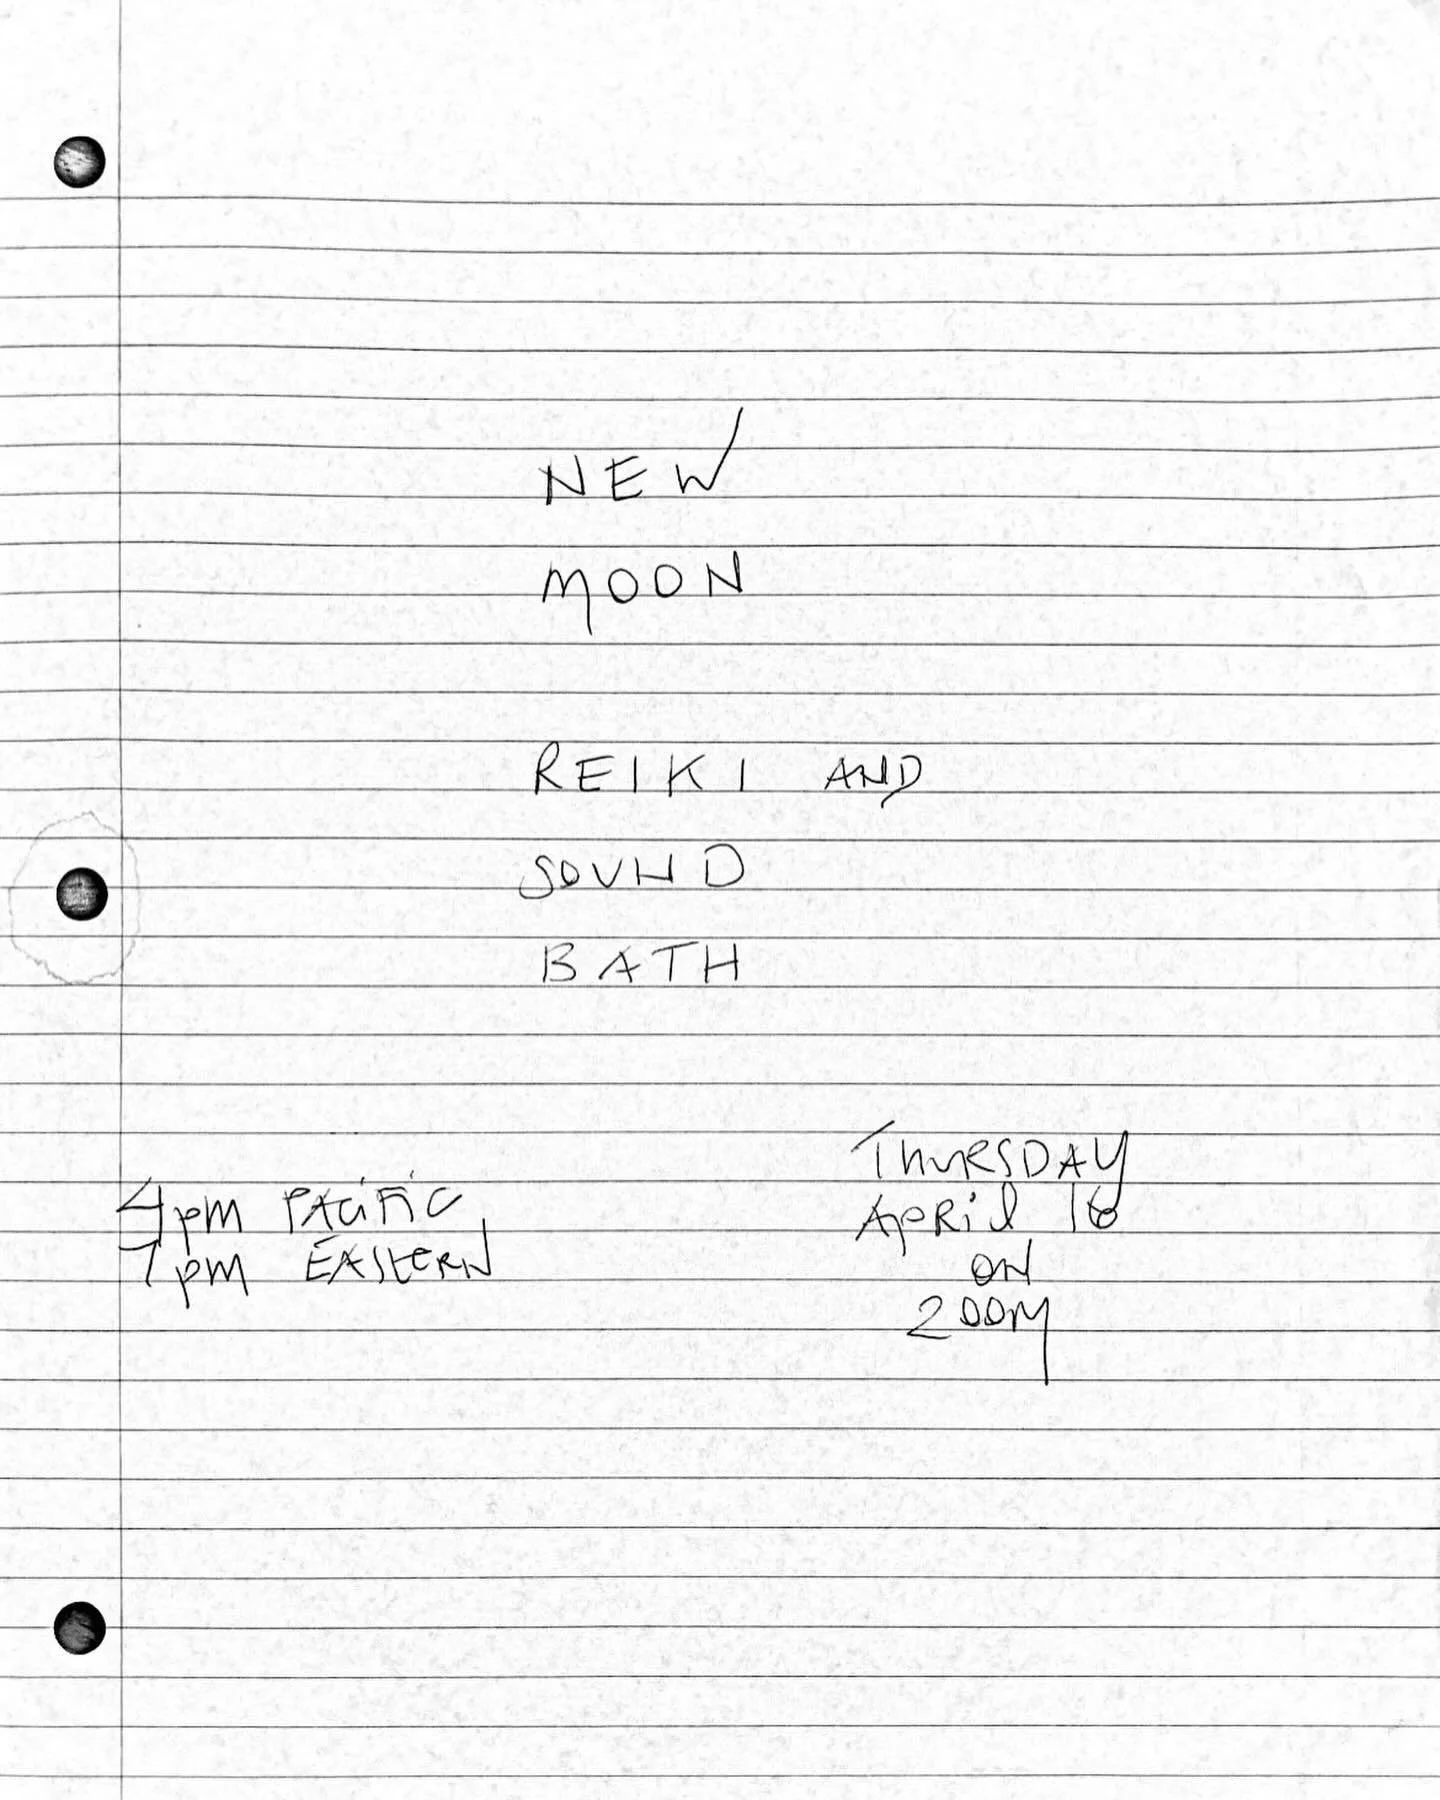 NEW
MOON
REIKI AND
SOUND
BATH
4pm PACiFiC
7pm EASTERN
THURSDAY
APRil 16
ON
ZOOM